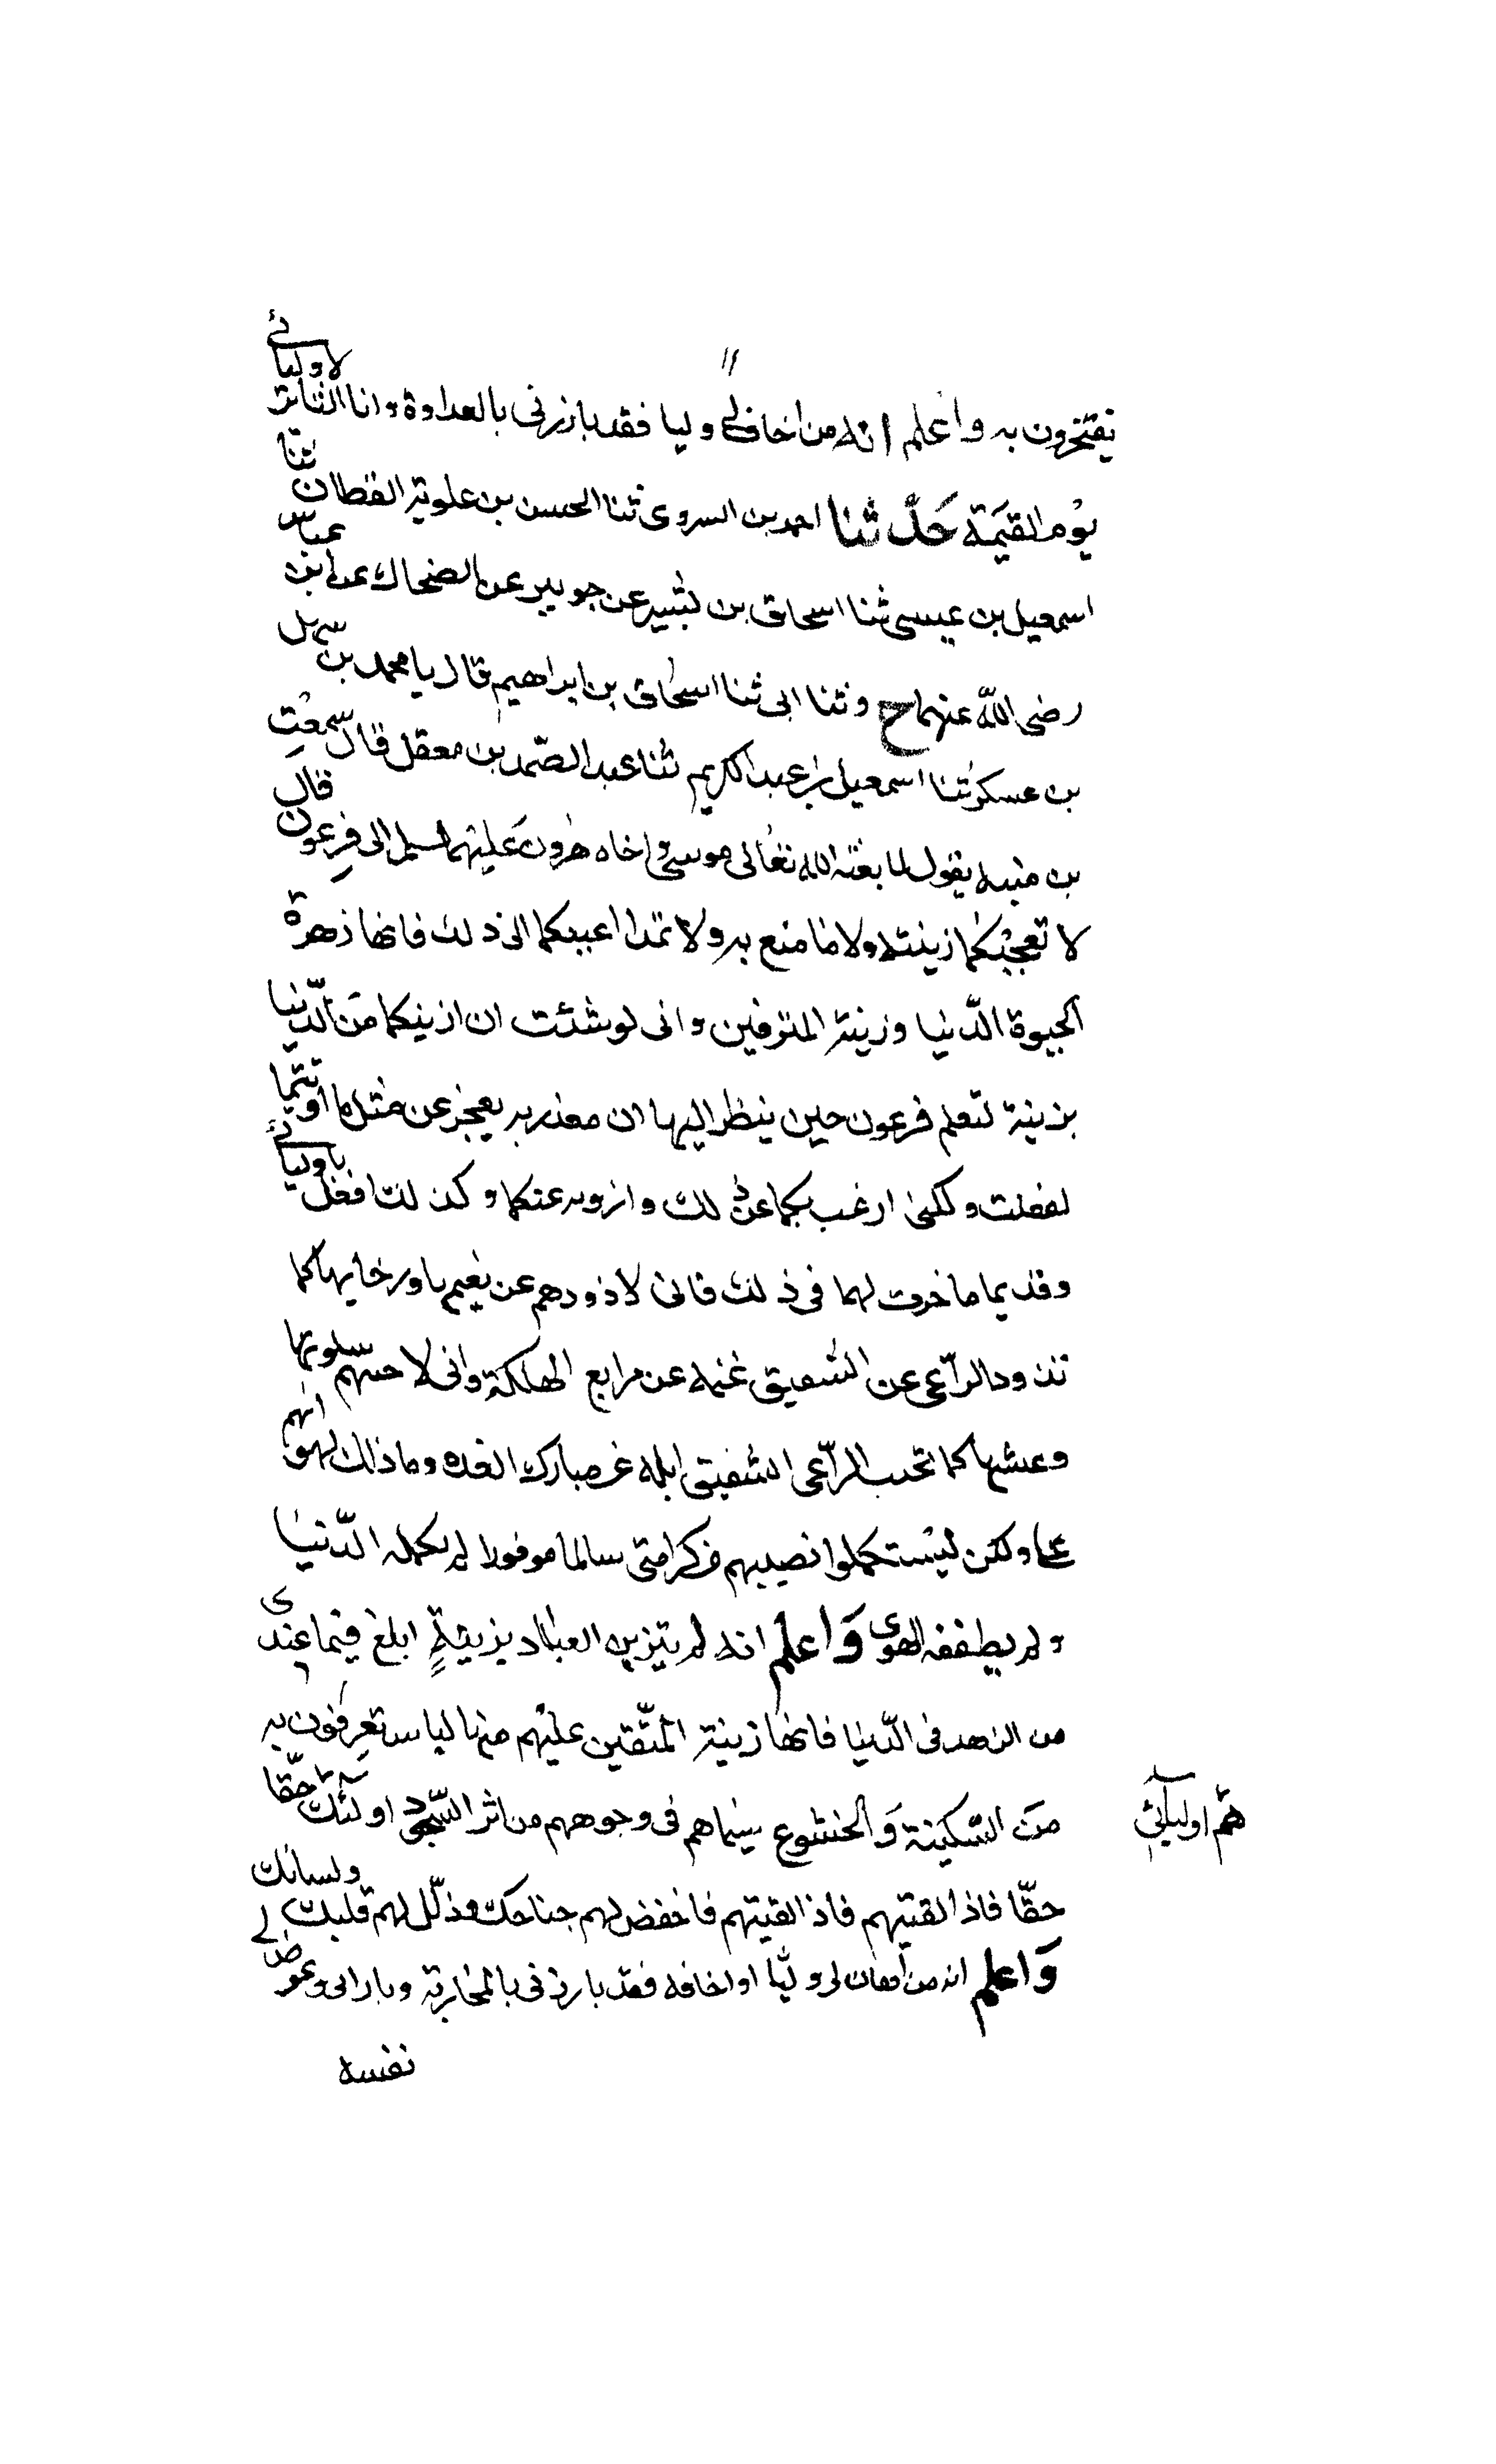 يفتخرون به واعلم انه من اخاف لي وليا فقد بارزني بالعداوة وانا الثائر لاوليائي
يوم القيمة حدثنا احمد بن السروي ثنا الحسن بن علوية القطان ثنا
اسمعيل بن عيسى ثنا اسحاق بن بشير عن جويبر عن الضحاك عن ابن عباس
رضى الله عنهما ح وثنا ابى ثنا اسحاق بن ابراهيم قال يا محمد بن سهل
بن عسكر ثنا اسمعيل بن عبد الكريم ثنا عبد الصمد بن معقل قال سمعت
بن منبه يقول لما بعثه الله تعالى موسى واخاه هرون عليهما السلم الى فرعون قال
لا تعجبكما زينته ولا ما متع به ولا تمدا اعينكما الى ذلك فانها زهرة
الحيوة الدنيا وزينة المترفين وانى لو شئت ان ازينكما من الدنيا
بزينة لتعلم فرعون حين ينظر اليها ان مقدربه يعجز عن مثل ما اوتيتما
لفعلت ولكنى ارغب بكما عن ذلك وازويه عنكما وكذلك افعل باوليائي
وقديما ما خرت لهما فى ذلك فانى لاذودهم عن نعيمها ورخايها كما
تذود الراعى عن الشفيق غنمه عن مرابع الهلكة وانى لا جنبهم سلوتها
وعيشها كما تجنب الراعى الشفيق ابله عن مبارك العده وما ذالك لهو انهم
على ولكن ليستكملوا نصيبهم من كرامتى سالما موفورا لم تكمله الدنيا
ولم يطففه الهوى واعلم انه لم يتزين العباد بزينة ابلغ فيما عندى
من الزهد فى الدنيا فانها زينة المتقين عليهم منها لباس تعرفون به
من السكينة والخشوع سيماهم فى وجوههم من اثر السجود اولئك حقا
هم اوليائي
حقا فاذا لقيتهم فاذا لقيتهم فاخفض لهم جناحك وذلل لهم قلبك ولسانك
واعلم انه من اهان لى وليا او اخافه فقد بارزنى بالمحاربة وبادانى وعرض لي
نفسه